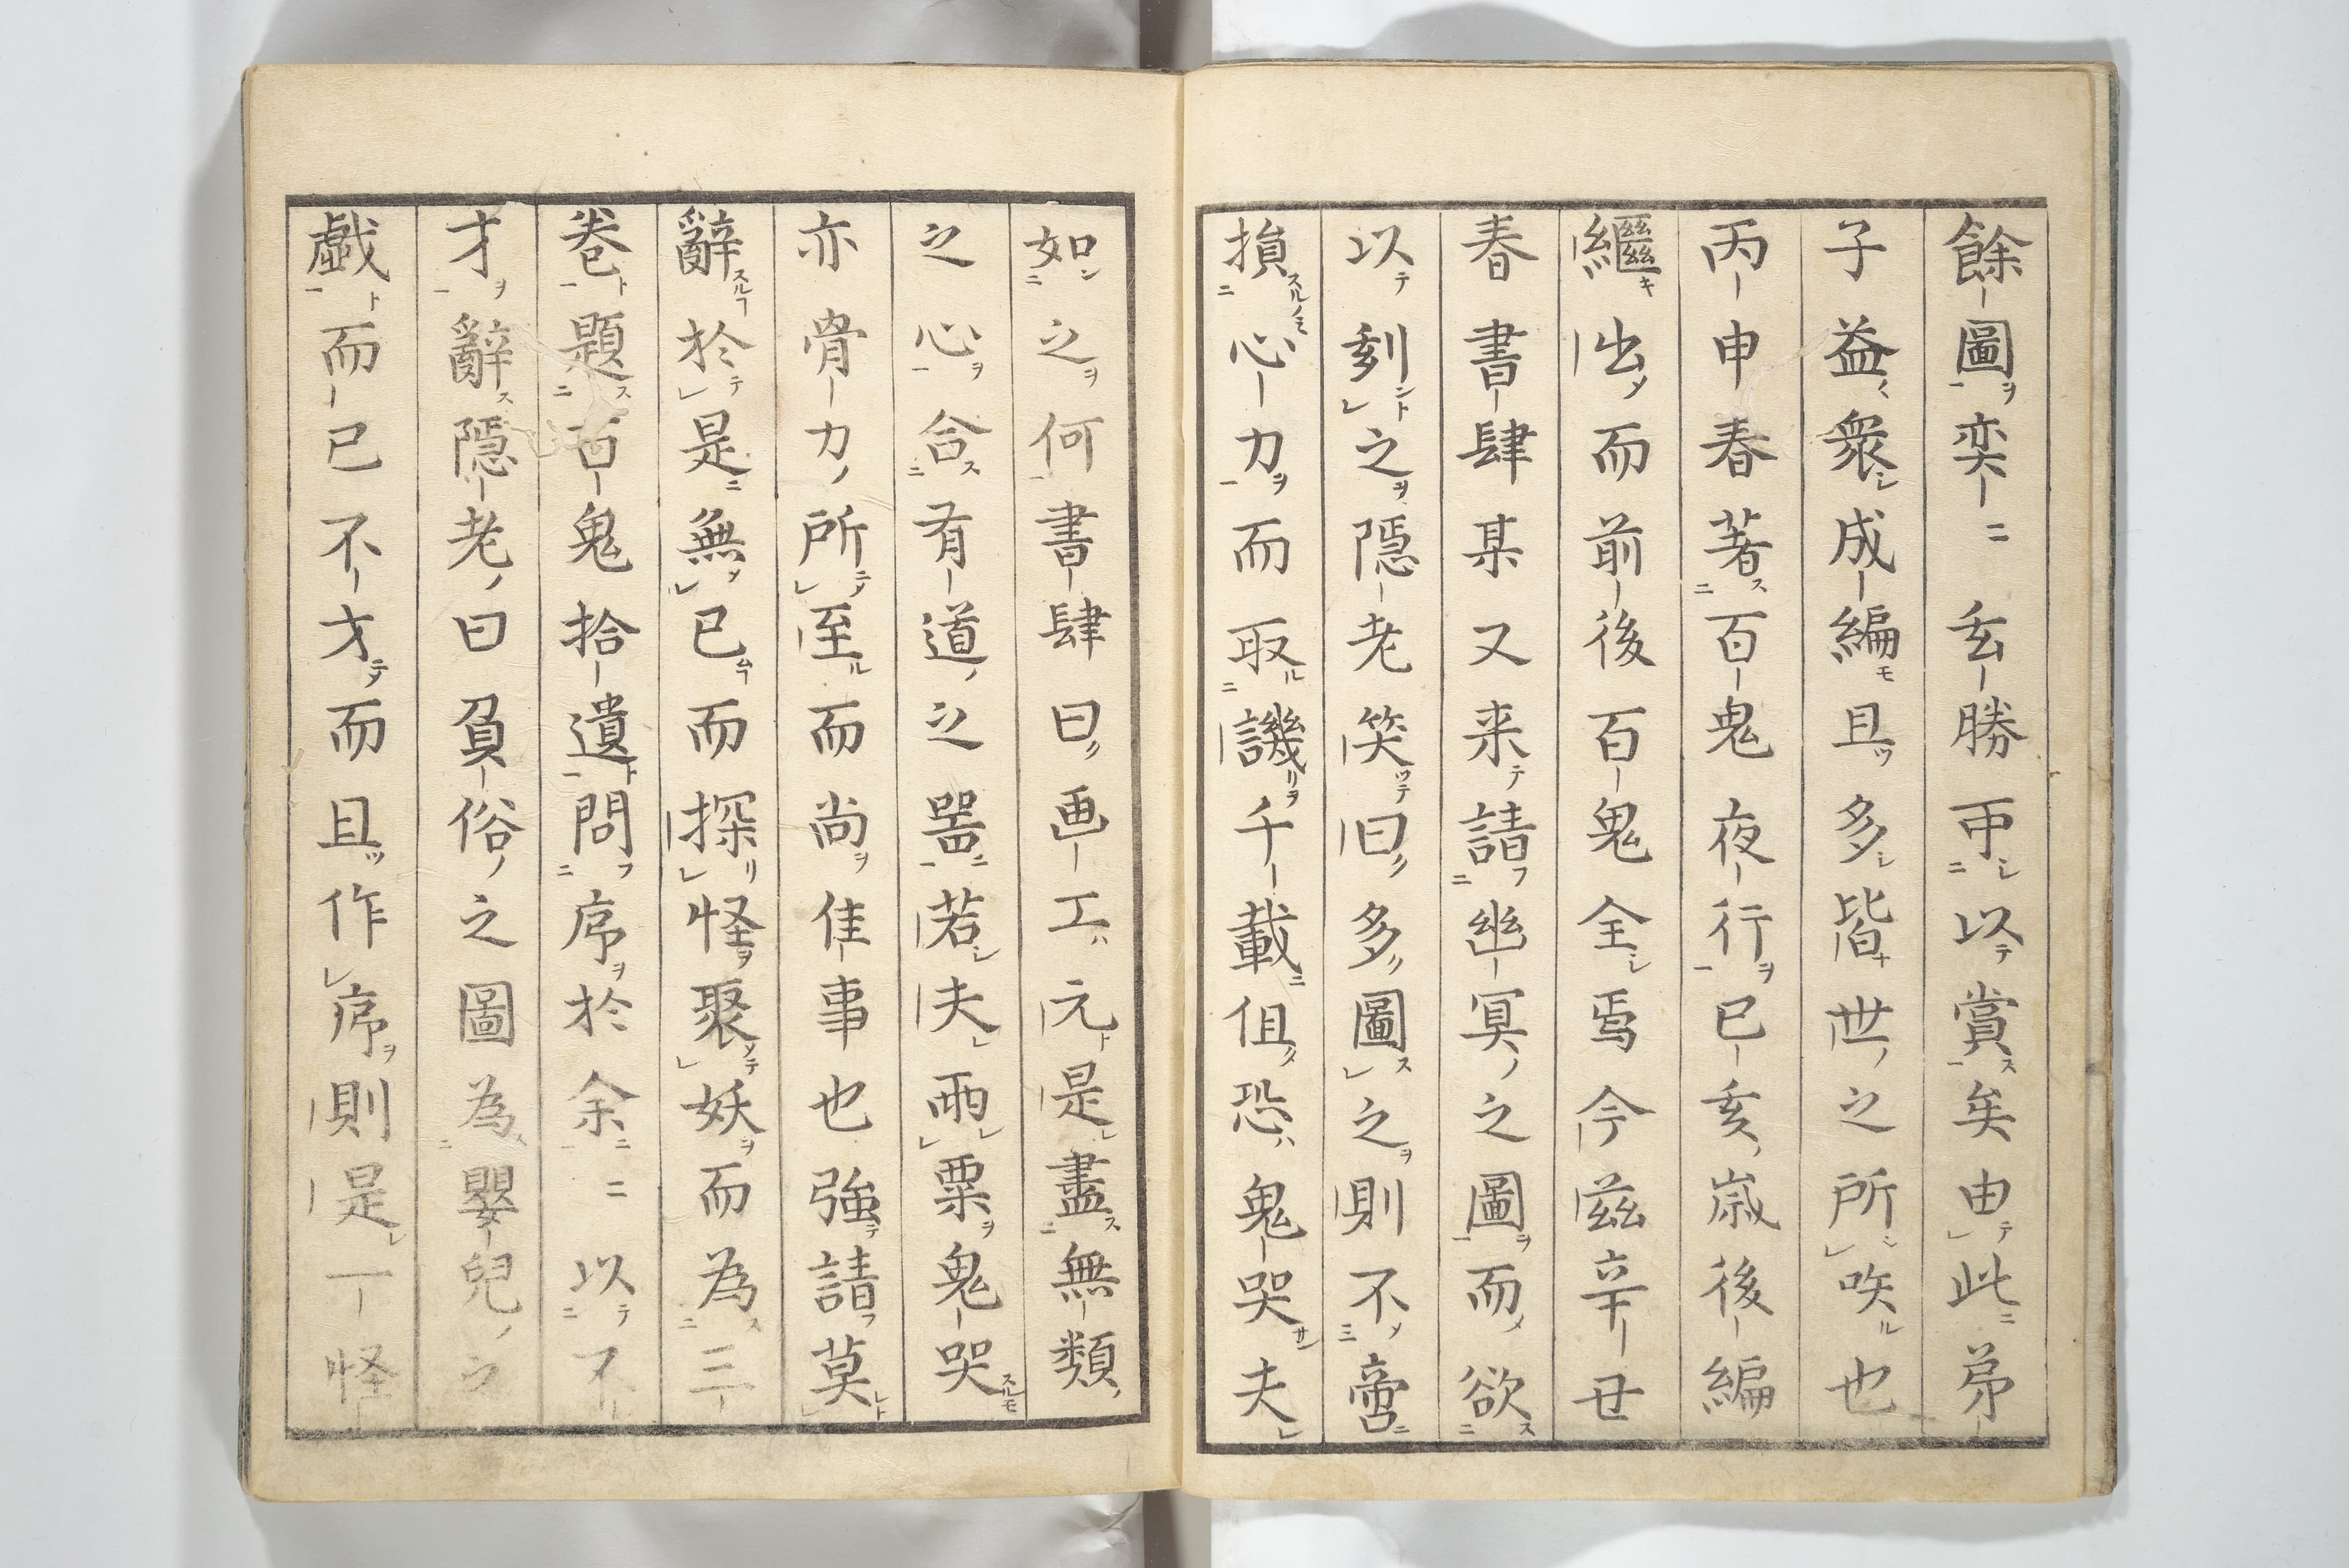 餘圖奕二玄勝而以賞矣由此弟
子益衆成編且多皆世之所咲也
丙申春著百鬼夜行已亥歳後編
繼出而前後百鬼全焉今茲辛丑
春書肆某又来請幽冥之圖而欲
以刻之隠老笑曰多圖之則不啻
損心力而取譏千載但恐鬼哭夫
如之何書肆曰画工元是盡無類
之心合有道之噐若夫雨粟鬼哭
亦骨力所至而尚佳事也強請莫
辭於是無已而探怪聚妖而為三
巻題百鬼拾遺問序於余二以不
才辭隠老曰負俗之圖為嬰兒之
戯而已不才而且作序則是一怪